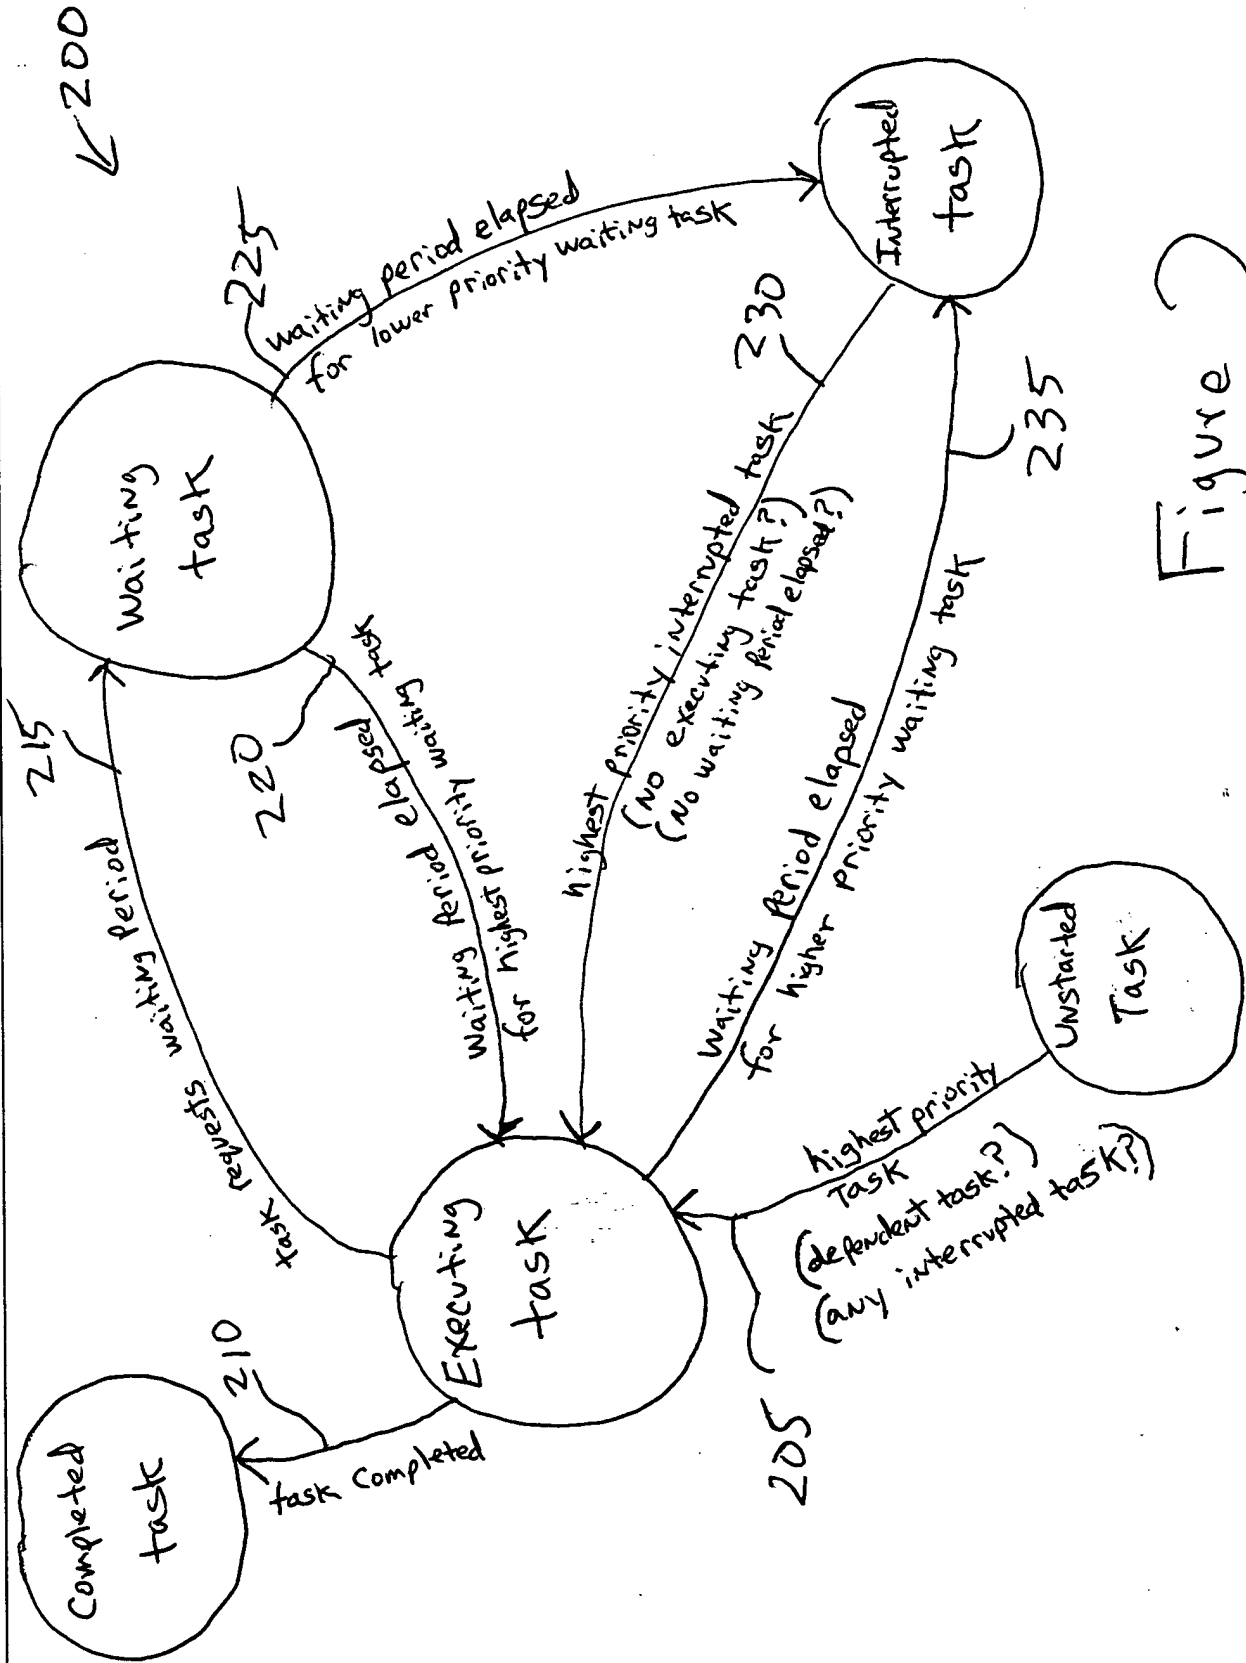 200
Completed
task
210
task completed
215
task requests waiting Period
Waiting
task
220
Waiting Period elapsed
for highest priority waiting task
225
waiting period elapsed
for lower priority waiting task
Executing
task
230
highest priority interrupted task
(No executing task?)
(No waiting Period elapsed?)
Interrupted
task
Waiting Period elapsed
for higher priority waiting task
235
205
highest priority
Task
(dependent task?)
(any interrupted task?)
Unstarted
Task
Figure